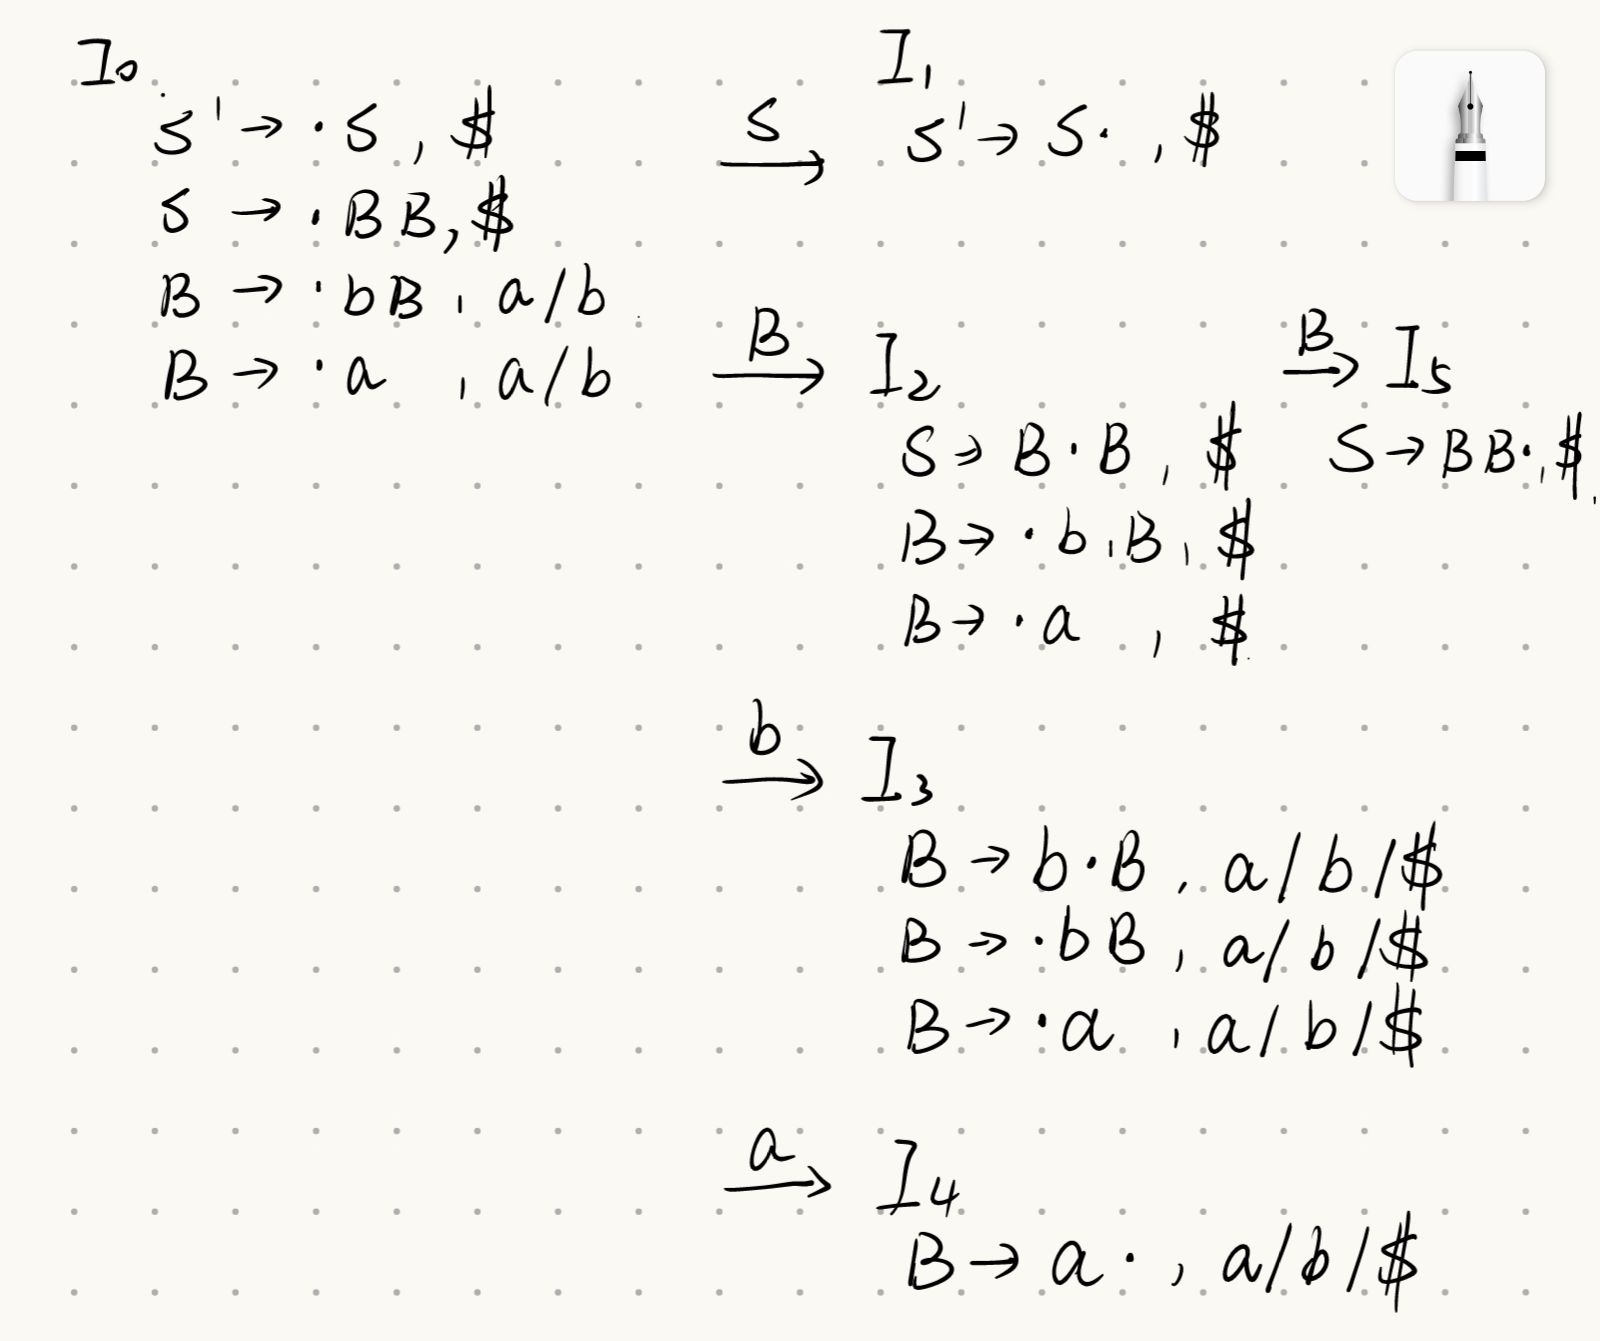 I₀
S' → ·S , $
S → ·BB, $
B → ·bB , a/b
B → ·a , a/b
S →
I₁
S' → S· , $
B →
I₂
S → B·B , $
B → ·b,B, $
B → ·a , $
B →
I₅
S → BB·, $
b →
I₃
B → b·B , a/b/$
B → ·bB , a/b/$
B → ·a , a/b/$
a →
I₄
B → a· , a/b/$